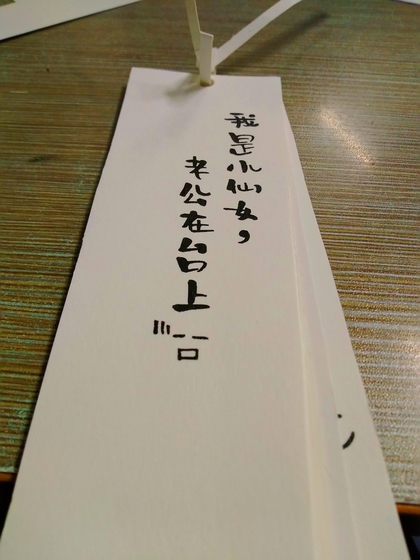 我是小仙女，
老公在台上